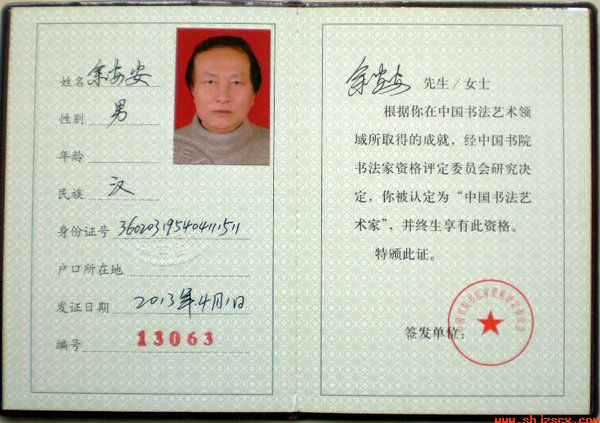 姓名
性别 男
年龄
民族 汉
身份证号 360203195404111511
户口所在地
发证日期 2013年4月1日
编号 13063
先生/女士
根据你在中国书法艺术领
域所取得的成就，经中国书院
书法家资格评定委员会研究决
定，你被认定为“中国书法艺
术家”，并终生享有此资格。
特颁此证。
签发单位：
中国书院书法家资格评定委员会